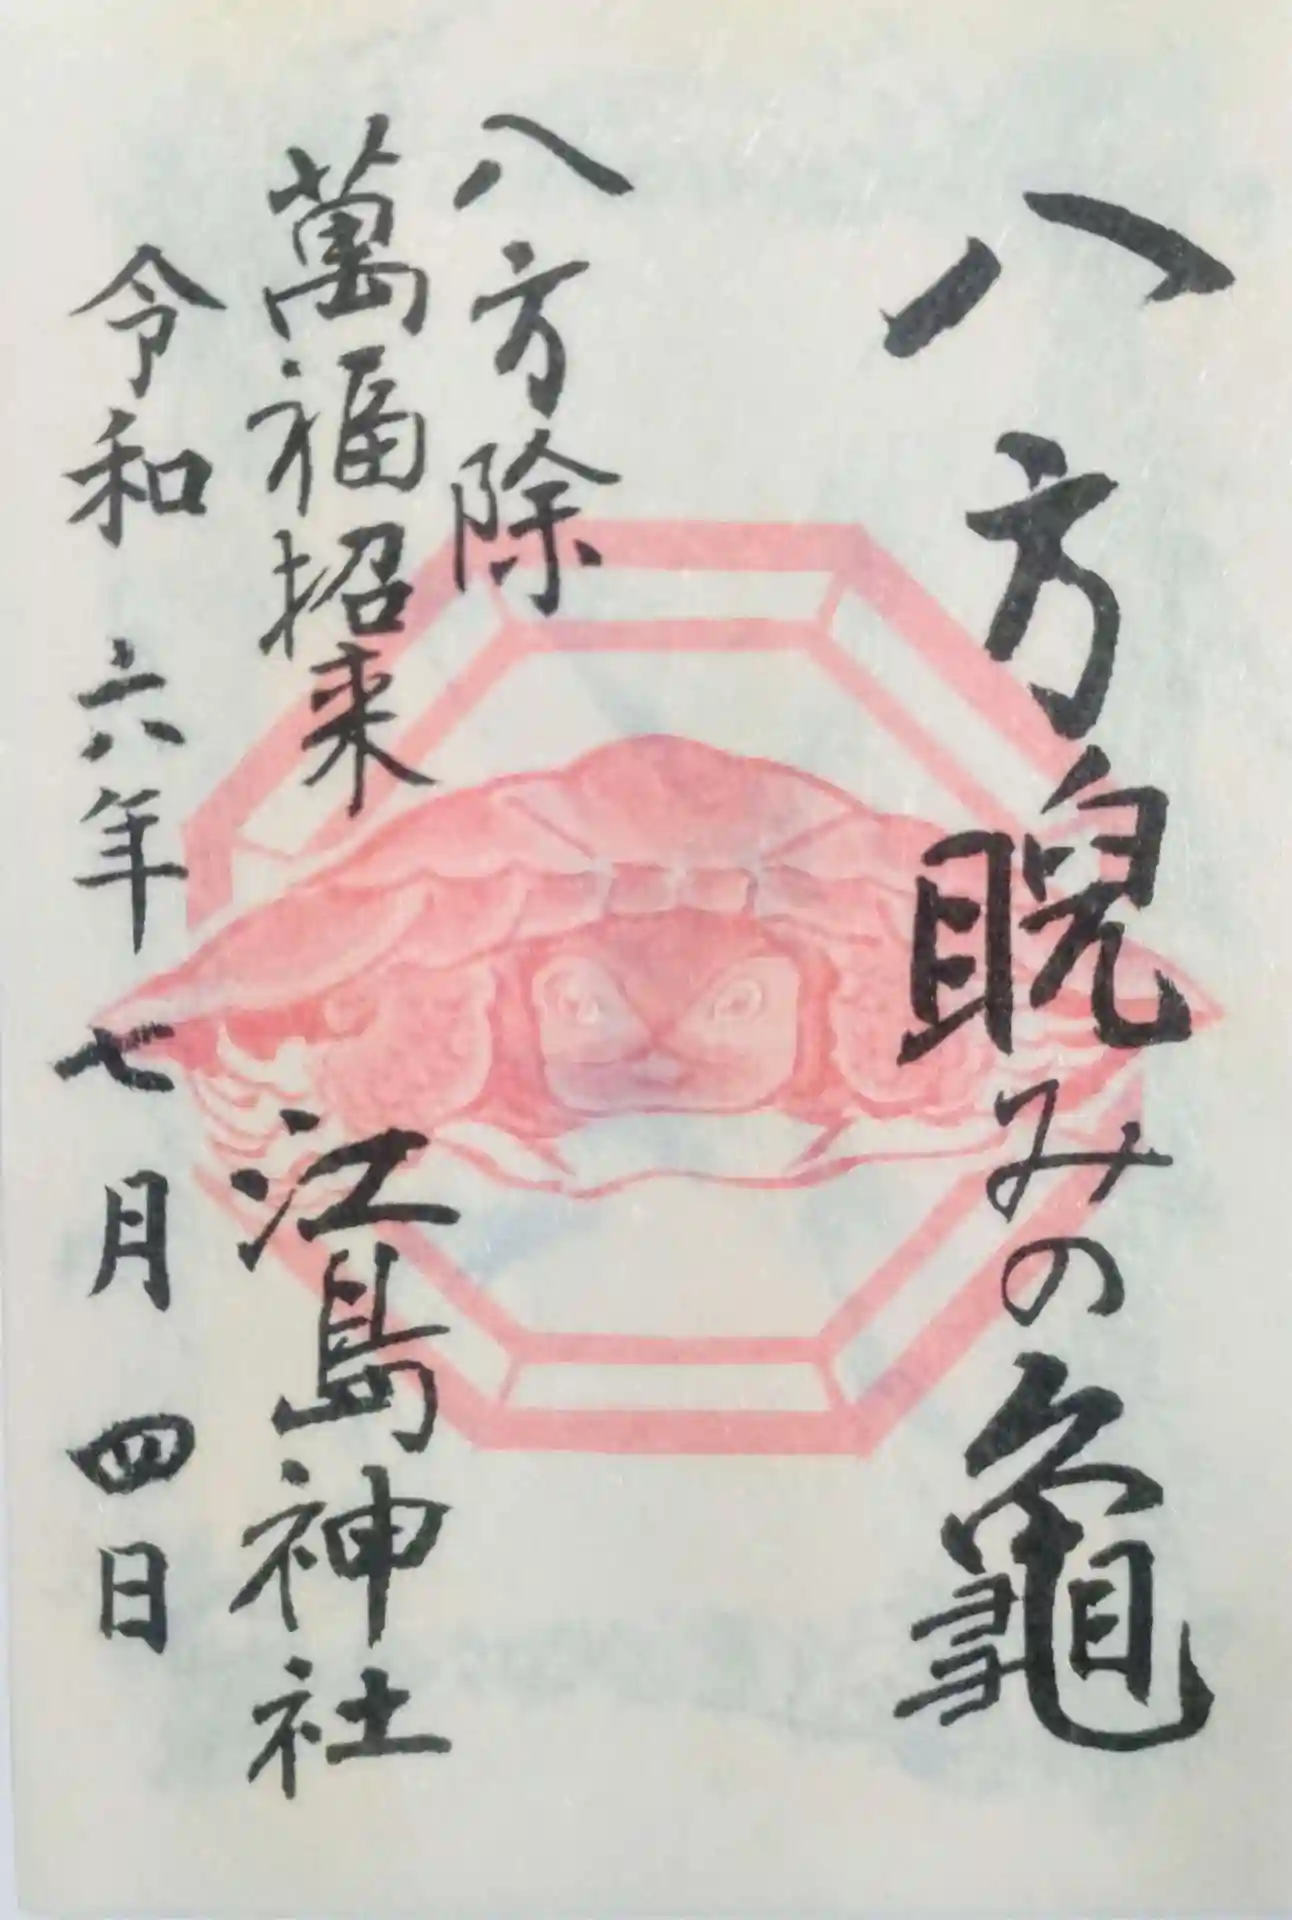 八方睨みの龜
八方除
萬福招来
江島神社
令和六年七月四日